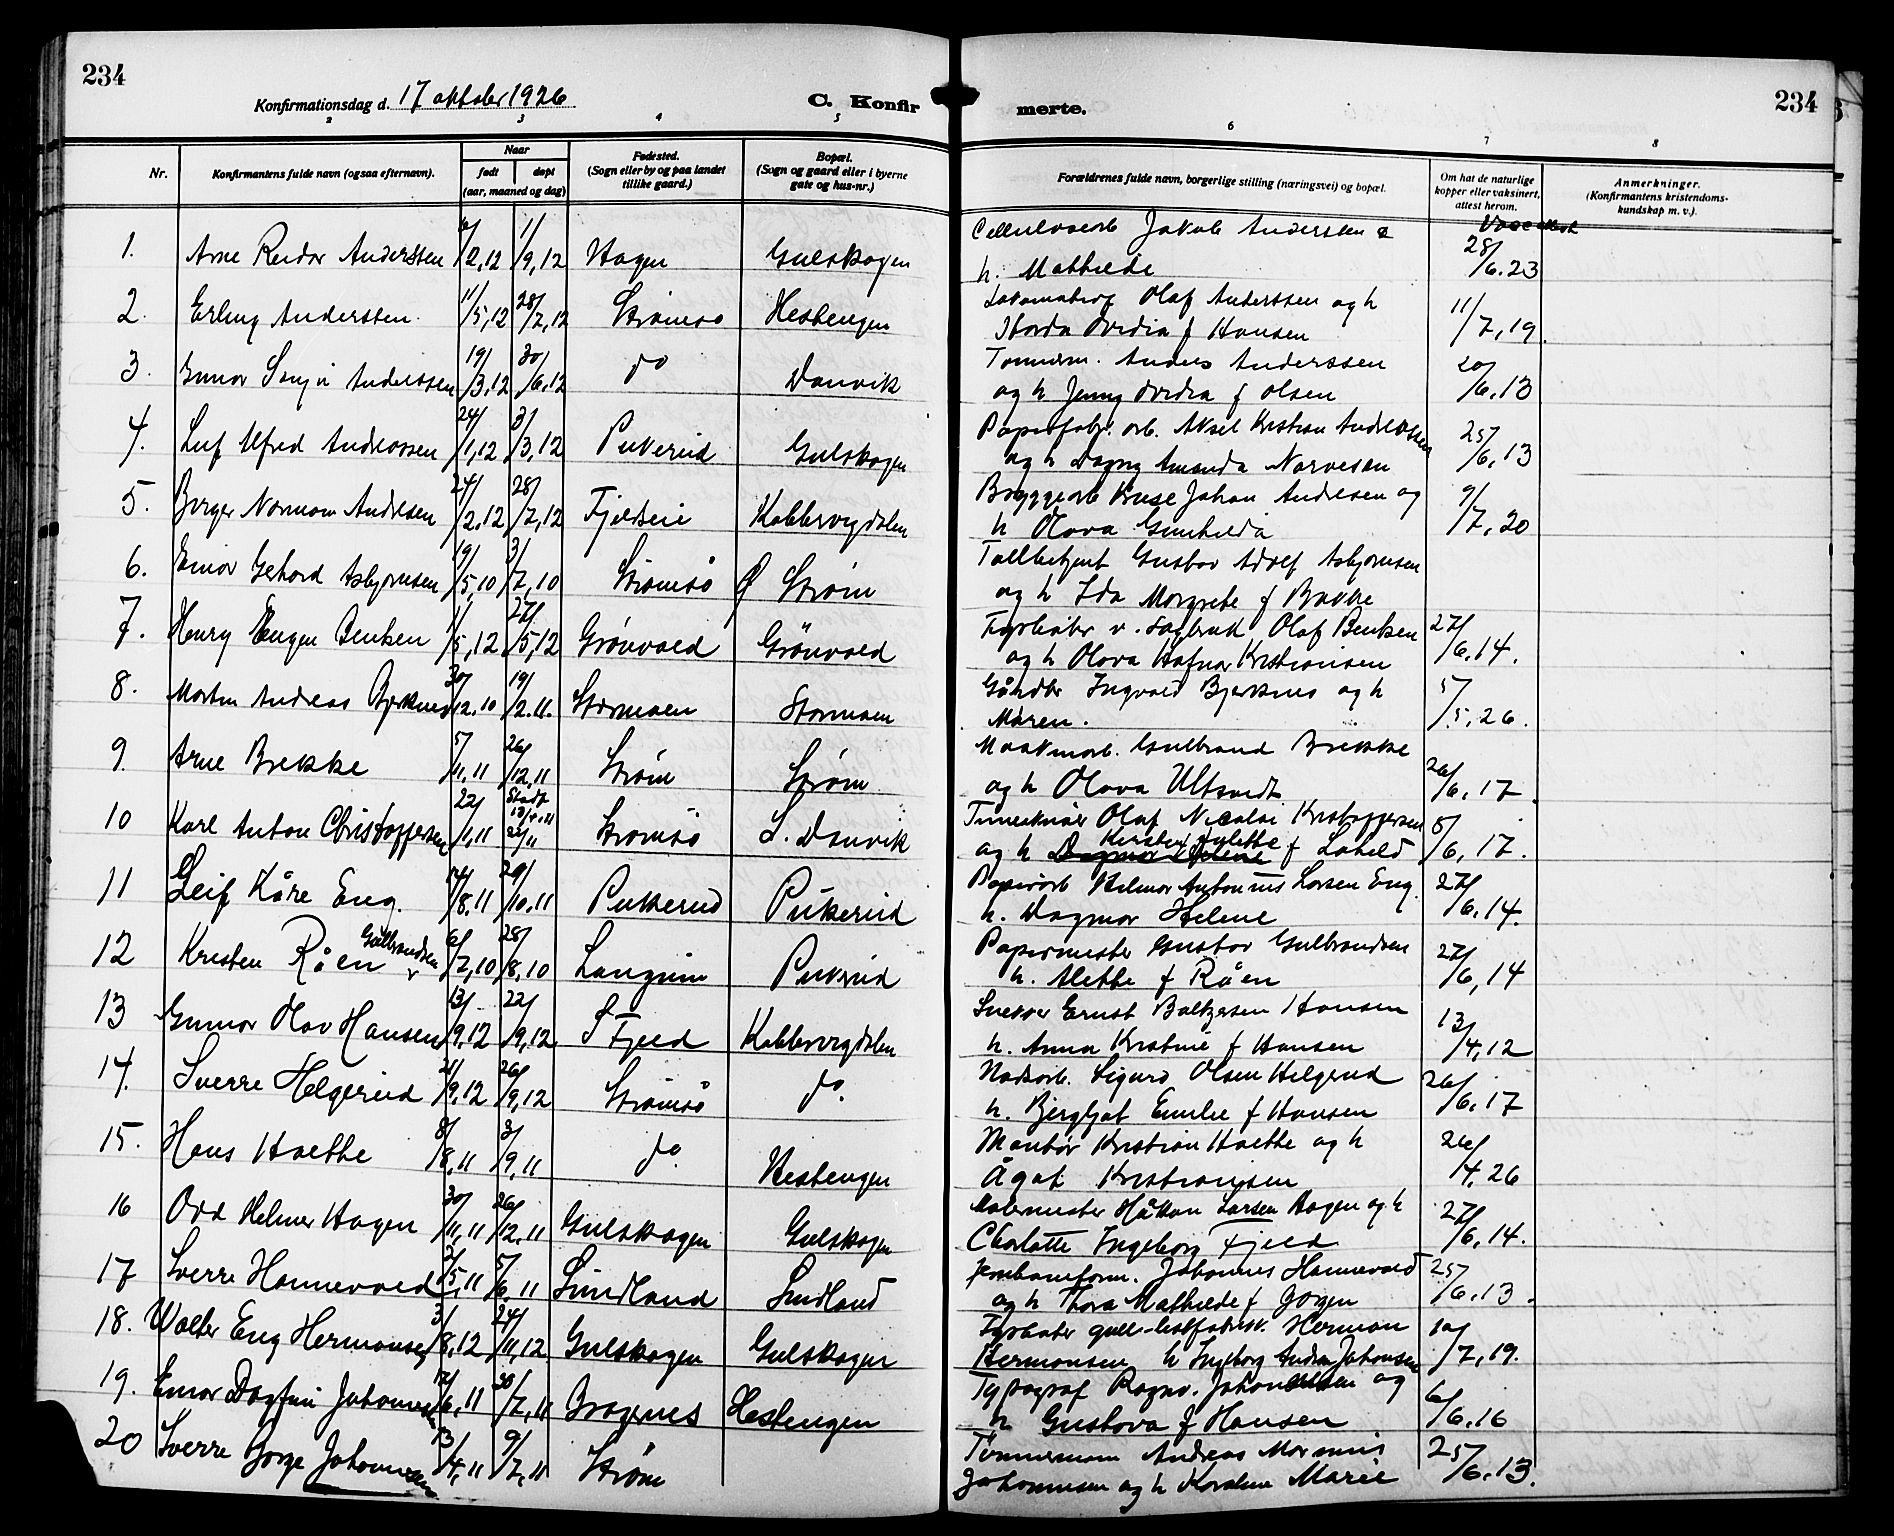 234
Konfirmationsdag d. 17 oktober 1926
C. Konfir
merte.
234
2 3 4 5 6 7 8
Nr.
Konfirmantens fulde navn (ogsaa efternavn).
Naar
født
døpt
(aar, maaned og dag)
Fødested.
(Sogn eller by og paa landet
tillike gaard.)
Bopæl.
(Sogn og gaard eller i byerne
gate og hus-nr.)
Forældrenes fulde navn, borgerlige stilling (næringsvei) og bopæl.
Om hat de naturlige
kopper eller vaksinert,
attest herom.
Anmerkninger.
(Konfirmantens kristendoms-
kundskap m. v.).
1. Arne Reidar Anderssen /2,12 1/9,12 Hagen Gulskogen Jakob Anderssen h. Mathilde 28/6.23
2. Erling Anderssen 11/5,12 28/7,12 Strømsø Hestengen Olaf Anderssen og h Ovidia f Hansen 11/7,19.
3. Gunnar Anderssen 19/3,12 30/6,12 do Danvik Tømmerm. Anders Anderssen og h Jenny Ovidia f Olsen 20/6.13
4. Leif Alfred Andreassen 24/1,12 3/3,12 Pukerud Gulskogen Papirfabr. arb. Aksel Kristian Andreassen og h Dagny Amanda Narvesen 25/6,13
5. Birger Normann Andresen 24/2,12 28/7,12 Fjeldheim Kobbervigdalen Bryggearb Johan Andresen og h Olava Gunhilda 9/7,20
6. Einar Gerhard Asbjørnsen 19/5,10 3/7,10 Strømsø Ø Strøm Tollbetjent Gustav Adolf Asbjørnsen og h Ida Margrete f Bakke
7. Henry Eugen Bentsen 1/5,12 27/5,12 Grønvold Grønvold Fyrbøter v. sagbruk Olaf Bentsen og h Olava Kristiansen 27/6,14.
8. Morten Andreas Bjerknes 30/12.10 19/2.11. Stormoen Stormoen Gårdbr Ingvald Bjerknes og h Maren. 5/5,26.
9. Arne Brekke 5/11,11 26/12,11 Strøm Strøm Gulbrand Brekke og h Olava Ultvedt 26/6,17
10 Karl Anton Christoffersen 22/1,11 Strømsø S. Danvik Olaf Nicolai Kristoffersen og h Dagmar Helene Kirsten f 8/6,17.
11 Leif Kåre Eng. 14/8.11 29/10.11 Pukerud Pukerud Papirarb Hilmar Antonius Larsen Eng. h. Dagmar Helene 27/6,14.
12 Kristen Råen Gulbrandsen 6/7,10 28/8,10 Langum Pukerud Papirmester Gustav Gulbrandsen h. Alette f Råen 27/6,14
13 Gunnar Olav Hansen 13/9,12 22/9,12 S Fjeld Kobbervigdalen Snekker Ernst Baltzersen Hansen h. Anna Kristine f Hansen 13/4,12
14. Sverre Helgerud 21/9,12 26/9,12 Strømsø do. Sigurd Olsen Helgerud h. Bergljot Emilie f Hansen 26/6,17
15. Hans Hoelthe 8/8,11 3/9,11 do. Hestengen Montør Kristian og h Ågot Kristiansen 26/4,26
16 Odd Helmer Hagen 30/11,11 26/12,11 Gulskogen Gulskogen Malermester Håkon Larsen Hagen og h Charlotte Ingeborg Fjeld 27/6,14.
17 Sverre Hannevold /5,11 5/6,11 Sundland Sundland Jernbaneform. Johannes Hannevold og h Thora Mathilde f Jorgen 25/6,13.
18. Walter Eng Hermansen 3/8,12 24/11,12 Gulskogen Gulskogen Fyrbøter gull-listfabrik. Herman Hermansen h Ingeborg Andrea Johansen /7,19.
19. Einar Dagfin Johannesen /6,11 30/7,11 Bragernes Hestengen Typograf Ragnv. og h Gustava f Hansen 6/6,16
20 Sverre Johannesen 13/4,11 9/7,11 Strøm Tømmermann Andreas Johannesen og h Karoline Marie 25/6,13.